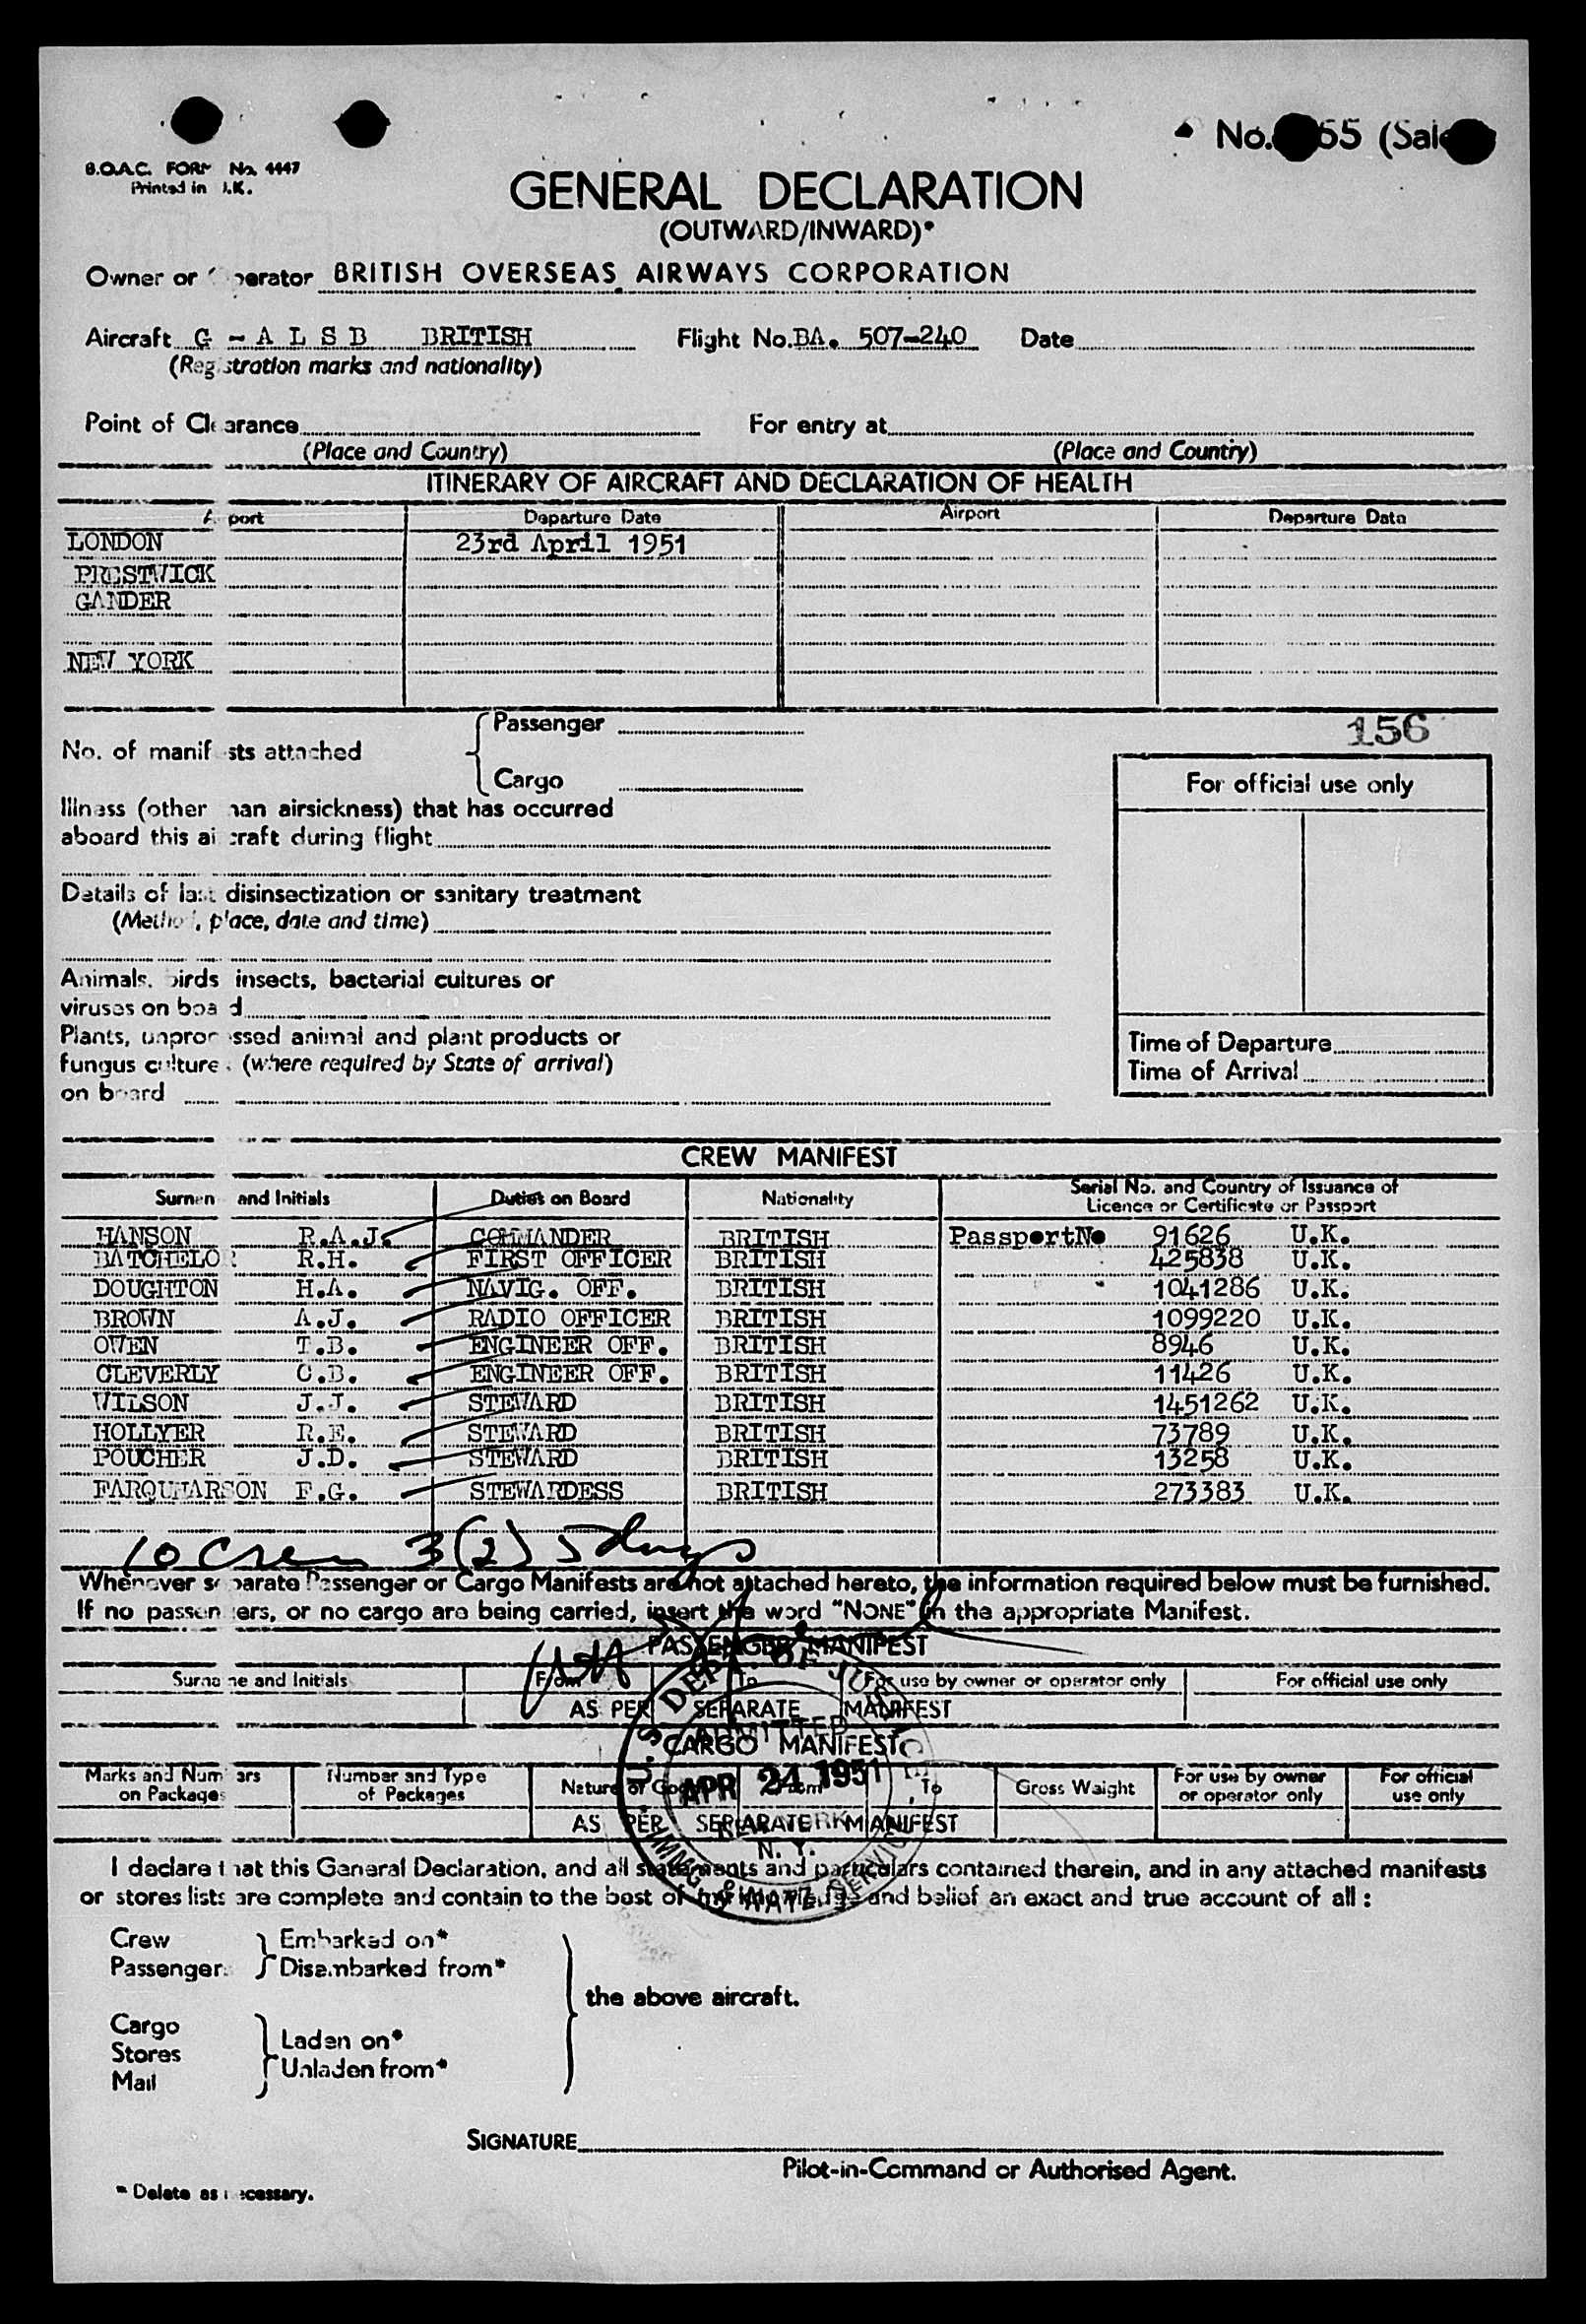 No. 55 (Sale
B.O.A.C. FORM No. 4447
Printed in U.K.
GENERAL DECLARATION
(OUTWARD/INWARD)*
Owner or Operator BRITISH OVERSEAS AIRWAYS CORPORATION
Aircraft G - A L S B BRITISH Flight No. BA. 507-240 Date
(Registration marks and nationality)
Point of Clearance For entry at
(Place and Country) (Place and Country)
ITINERARY OF AIRCRAFT AND DECLARATION OF HEALTH
Airport Departure Date Airport Departure Date
LONDON 23rd April 1951
PRESTWICK
GANDER
NEW YORK
156
No. of manifests attached { Passenger
Cargo
For official use only
Illness (other than airsickness) that has occurred
aboard this aircraft during flight
Details of last disinsectization or sanitary treatment
(Method, place, date and time)
Animals, birds insects, bacterial cultures or
viruses on board
Plants, unprocessed animal and plant products or
fungus cultures (where required by State of arrival)
on board
Time of Departure
Time of Arrival
CREW MANIFEST
Surname and Initials Duties on Board Nationality Serial No. and Country of Issuance of Licence or Certificate or Passport
HANSON R.A.J. COMMANDER BRITISH PassportNo 91626 U.K.
BATCHELOR R.H. FIRST OFFICER BRITISH 425838 U.K.
DOUGHTON H.A. NAVIG. OFF. BRITISH 1041286 U.K.
BROWN A.J. RADIO OFFICER BRITISH 1099220 U.K.
OWEN T.B. ENGINEER OFF. BRITISH 8946 U.K.
CLEVERLY C.B. ENGINEER OFF. BRITISH 11426 U.K.
WILSON J.J. STEWARD BRITISH 1451262 U.K.
HOLLYER R.E. STEWARD BRITISH 73789 U.K.
POUCHER J.D. STEWARD BRITISH 13258 U.K.
FARQUHARSON F.G. STEWARDESS BRITISH 273383 U.K.
10 Crew 3(2) 5 days
Whenever separate Passenger or Cargo Manifests are not attached hereto, the information required below must be furnished.
If no passengers, or no cargo are being carried, insert the word "NONE" in the appropriate Manifest.
PASSENGER MANIFEST
Surname and Initials From To For use by owner or operator only For official use only
AS PER SEPARATE MANIFEST
CARGO MANIFEST
Marks and Numbers on Packages Number and Type of Packages Nature of Goods From To Gross Weight For use by owner or operator only For official use only
AS PER SEPARATE MANIFEST
U.S. DEPT. OF JUSTICE
ADMITTED
APR 24 1951
NEW YORK
N. Y.
IMMIG. & NATZ. SERVICE
I declare that this General Declaration, and all statements and particulars contained therein, and in any attached manifests
or stores lists are complete and contain to the best of my knowledge and belief an exact and true account of all :
Crew } Embarked on*
Passengers } Disembarked from*
the above aircraft.
Cargo
Stores } Laden on*
Mail } Unladen from*
SIGNATURE
Pilot-in-Command or Authorised Agent.
* Delete as necessary.